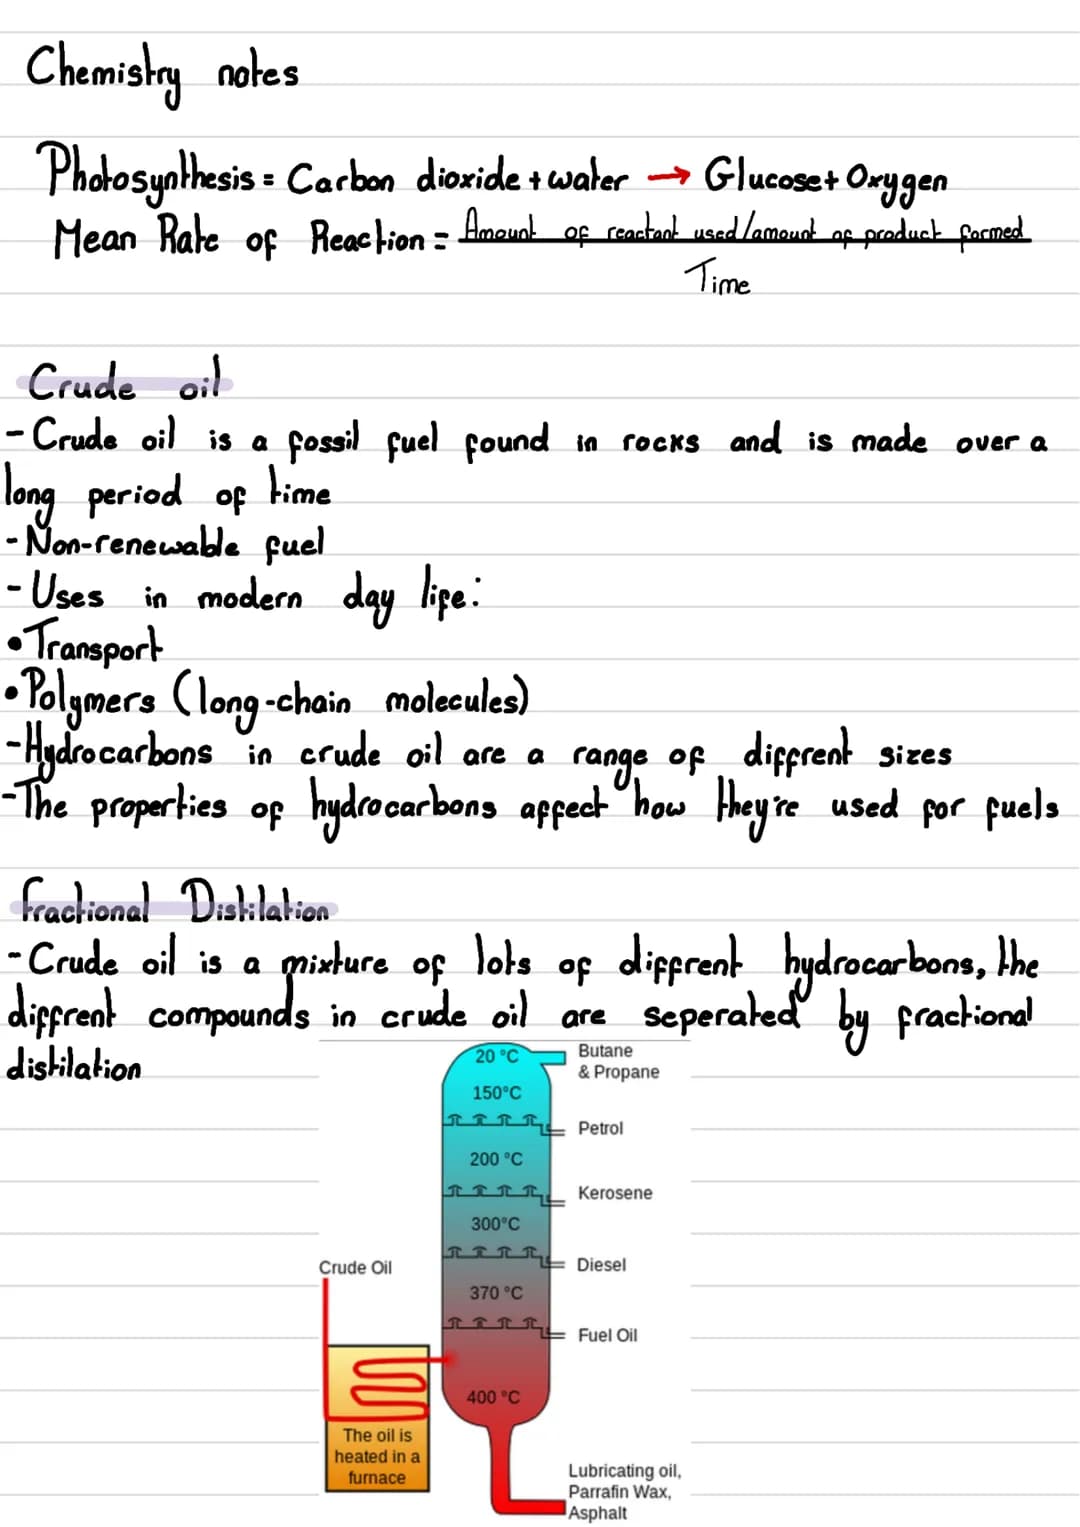 Chemistry notes
Photosynthesis = Carbon dioxide + water → Glucose + Oxygen
Mean Rate of Reaction = Amount of reactant used/amount of product formed
Time
Crude oil
- Crude oil is a fossil fuel found in rocks and is made over a
long period of time
- Non-renewable fuel
- Uses in modern day life:
• Transport
• Polymers (long-chain molecules)
- Hydrocarbons in crude oil are a range of diffrent sizes
- The properties of hydrocarbons affect how they're used for fuels
Fractional Distilation
- Crude oil is a mixture of lots of diffrent hydrocarbons, the
diffrent compounds in crude oil are seperated by fractional
distilation
20 °C
Butane
& Propane
150°C
Petrol
200 °C
Kerosene
300°C
Crude Oil
Diesel
370 °C
Fuel Oil
400 °C
The oil is
heated in a
furnace
Lubricating oil,
Parrafin Wax,
Asphalt